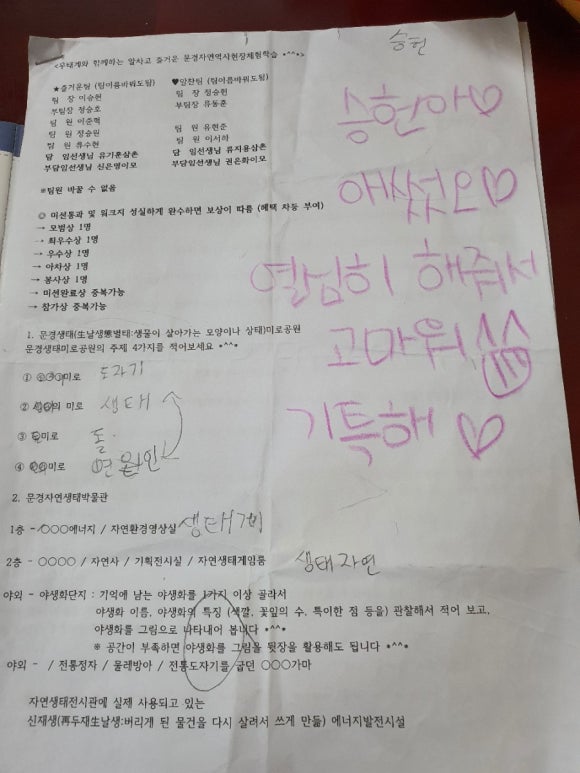 승현
<우태계와 함께하는 알차고 즐거운 문경자연역사현장체험학습 *^^*>
★즐거운팀 (팀이름바꿔도됨) ♥알찬팀 (팀이름바꿔도됨)
팀 장 이승현 팀 장 정승헌
부팀장 정승호 부팀장 유동훈
팀 원 이준혁
팀 원 정승원 팀 원 유현준
팀 원 류수현 팀 원 이서하
담 임선생님 유기훈삼촌 담 임선생님 류지용삼촌
부담임선생님 신은영이모 부담임선생님 권은화이모
※팀원 바꿀 수 없음
◎ 미션통과 및 워크지 성실하게 완수하면 보상이 따름 (혜택 차등 부여)
→ 모범상 1명
→ 최우수상 1명
→ 우수상 1명
→ 아차상 1명
→ 봉사상 1명
→ 미션완료상 중복가능
→ 참가상 중복가능
승현아♡
애썼어♡
열심히 해줘서
고마워
기특해♡
1. 문경생태(生날생態벌태:생물이 살아가는 모양이나 상태)미로공원
문경생태미로공원의 주제 4가지를 적어보세요 *^^*
① ○○○미로 도자기
② ○○의 미로 생태
③ ○미로 돌
④ ○○미로 연인
2. 문경자연생태박물관
1층 - ○○○에너지 / 자연환경영상실 생태계
2층 - ○○○○ / 자연사 / 기획전시실 / 자연생태게임룸 생태자연
야외 - 야생화단지 : 기억에 남는 야생화를 1가지 이상 골라서
야생화 이름, 야생화의 특징 (색깔, 꽃잎의 수, 특이한 점 등을) 관찰해서 적어 보고,
야생화를 그림으로 나타내어 봅니다 *^^*
※ 공간이 부족하면 야생화를 그림을 뒷장을 활용해도 됩니다 *^^*
야외 - / 전통정자 / 물레방아 / 전통도자기를 굽던 ○○○가마
자연생태전시관에 실제 사용되고 있는
신재생(再두재生날생:버리게 된 물건을 다시 살려서 쓰게 만듦) 에너지발전시설